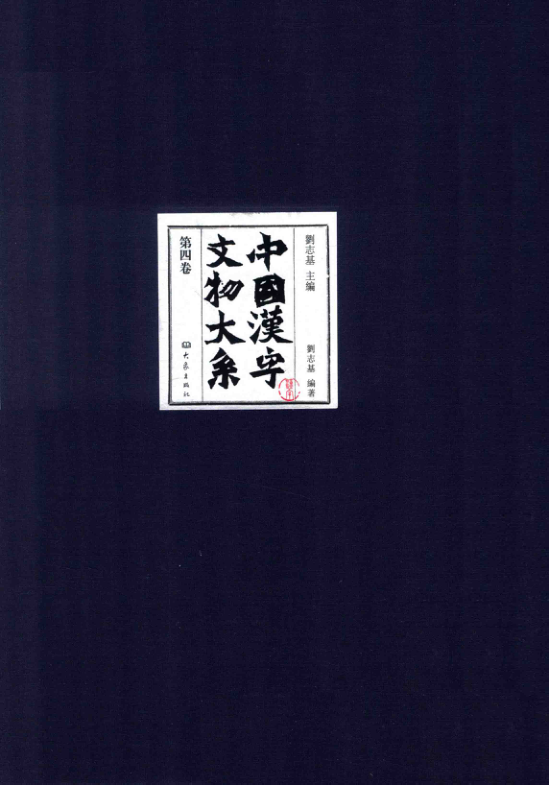 劉志基 主編
劉志基 編著
中國漢字
文物大系
第四卷
大象出版社